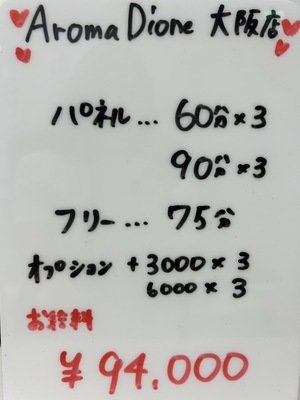 Aroma Dione 大阪店
パネル... 60分×3
90分×3
フリー... 75分
オプション +3000×3
6000×3
お給料
¥94.000